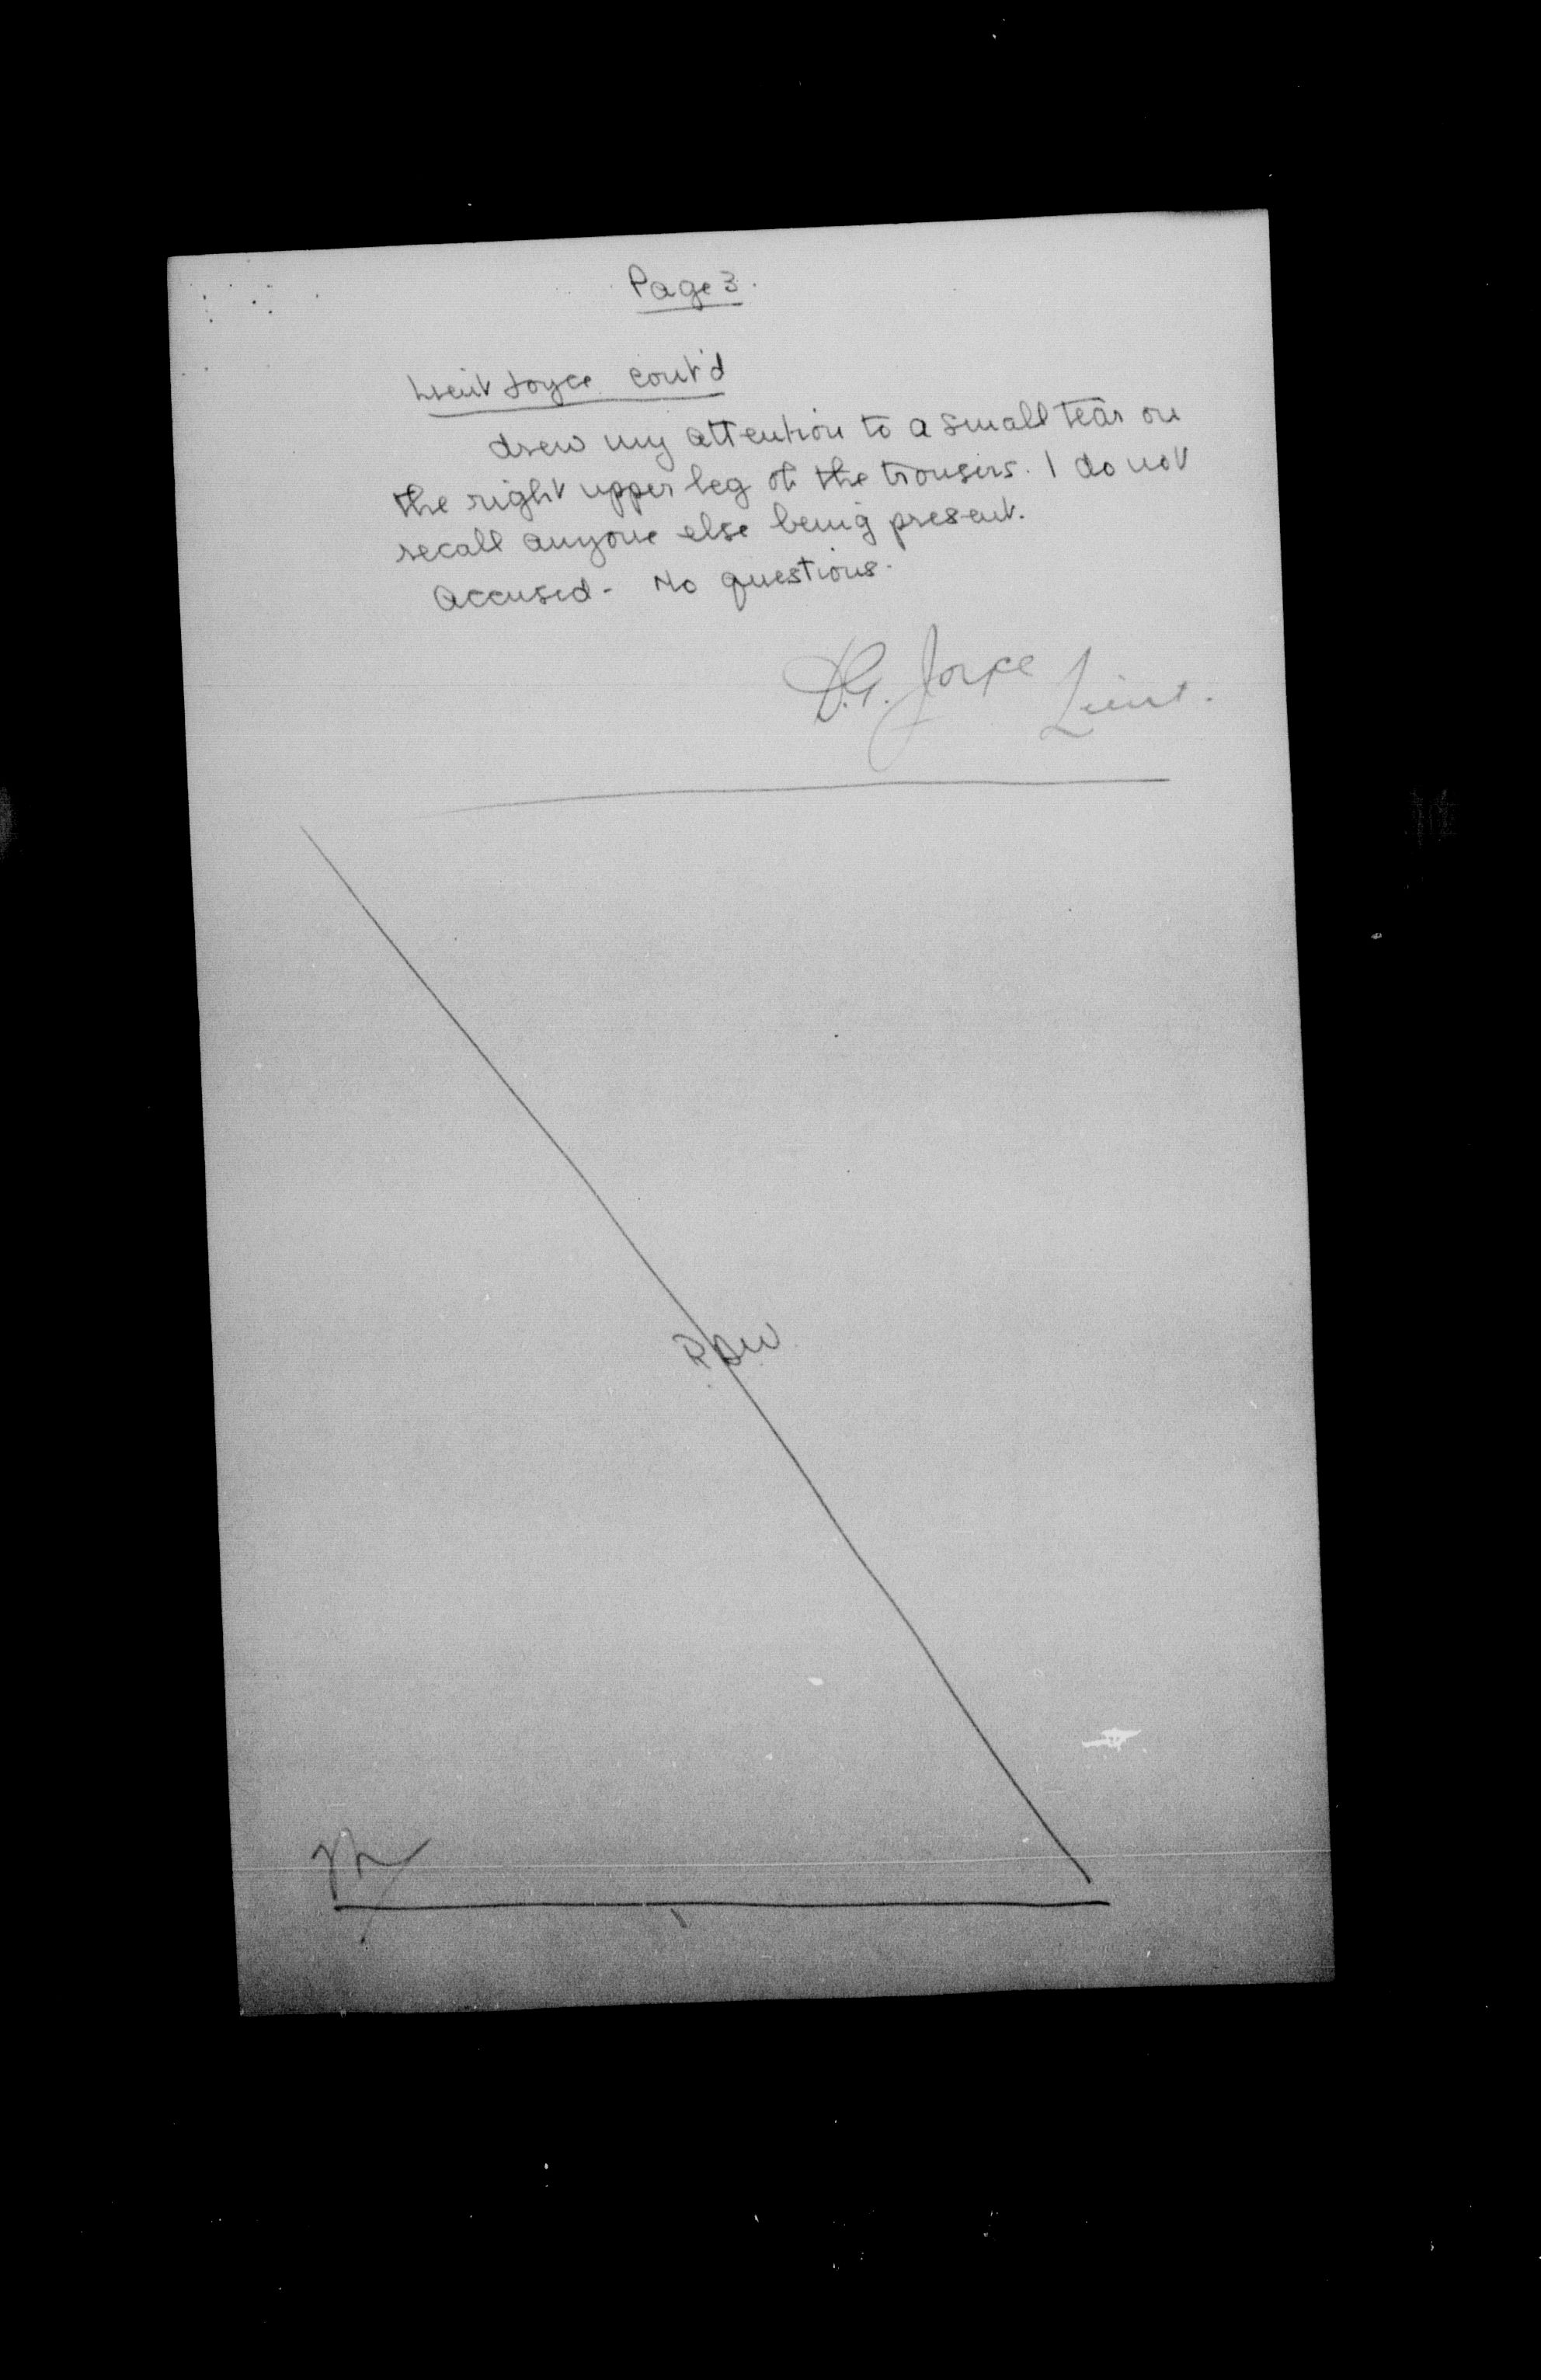 Page 3.
Lieut Joyce cont'd
drew my attention to a small tear on
the right upper leg of the trousers. I do not
recall anyone else being present.
Accused - No questions.
D.G. Joyce Lieut.